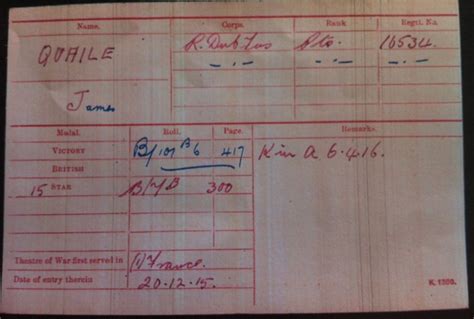 Name. Corps. Rank Regtl. No.
QUAILE R. Dub Fus Pte. 10534.
James
Medal. Roll. Page. Remarks.
VICTORY B/101 B6 417 K in A 6.4.16.
BRITISH
15 STAR 300
Theatre of War first served in (1) France.
Date of entry therein 20.12.15.
K. 1380.